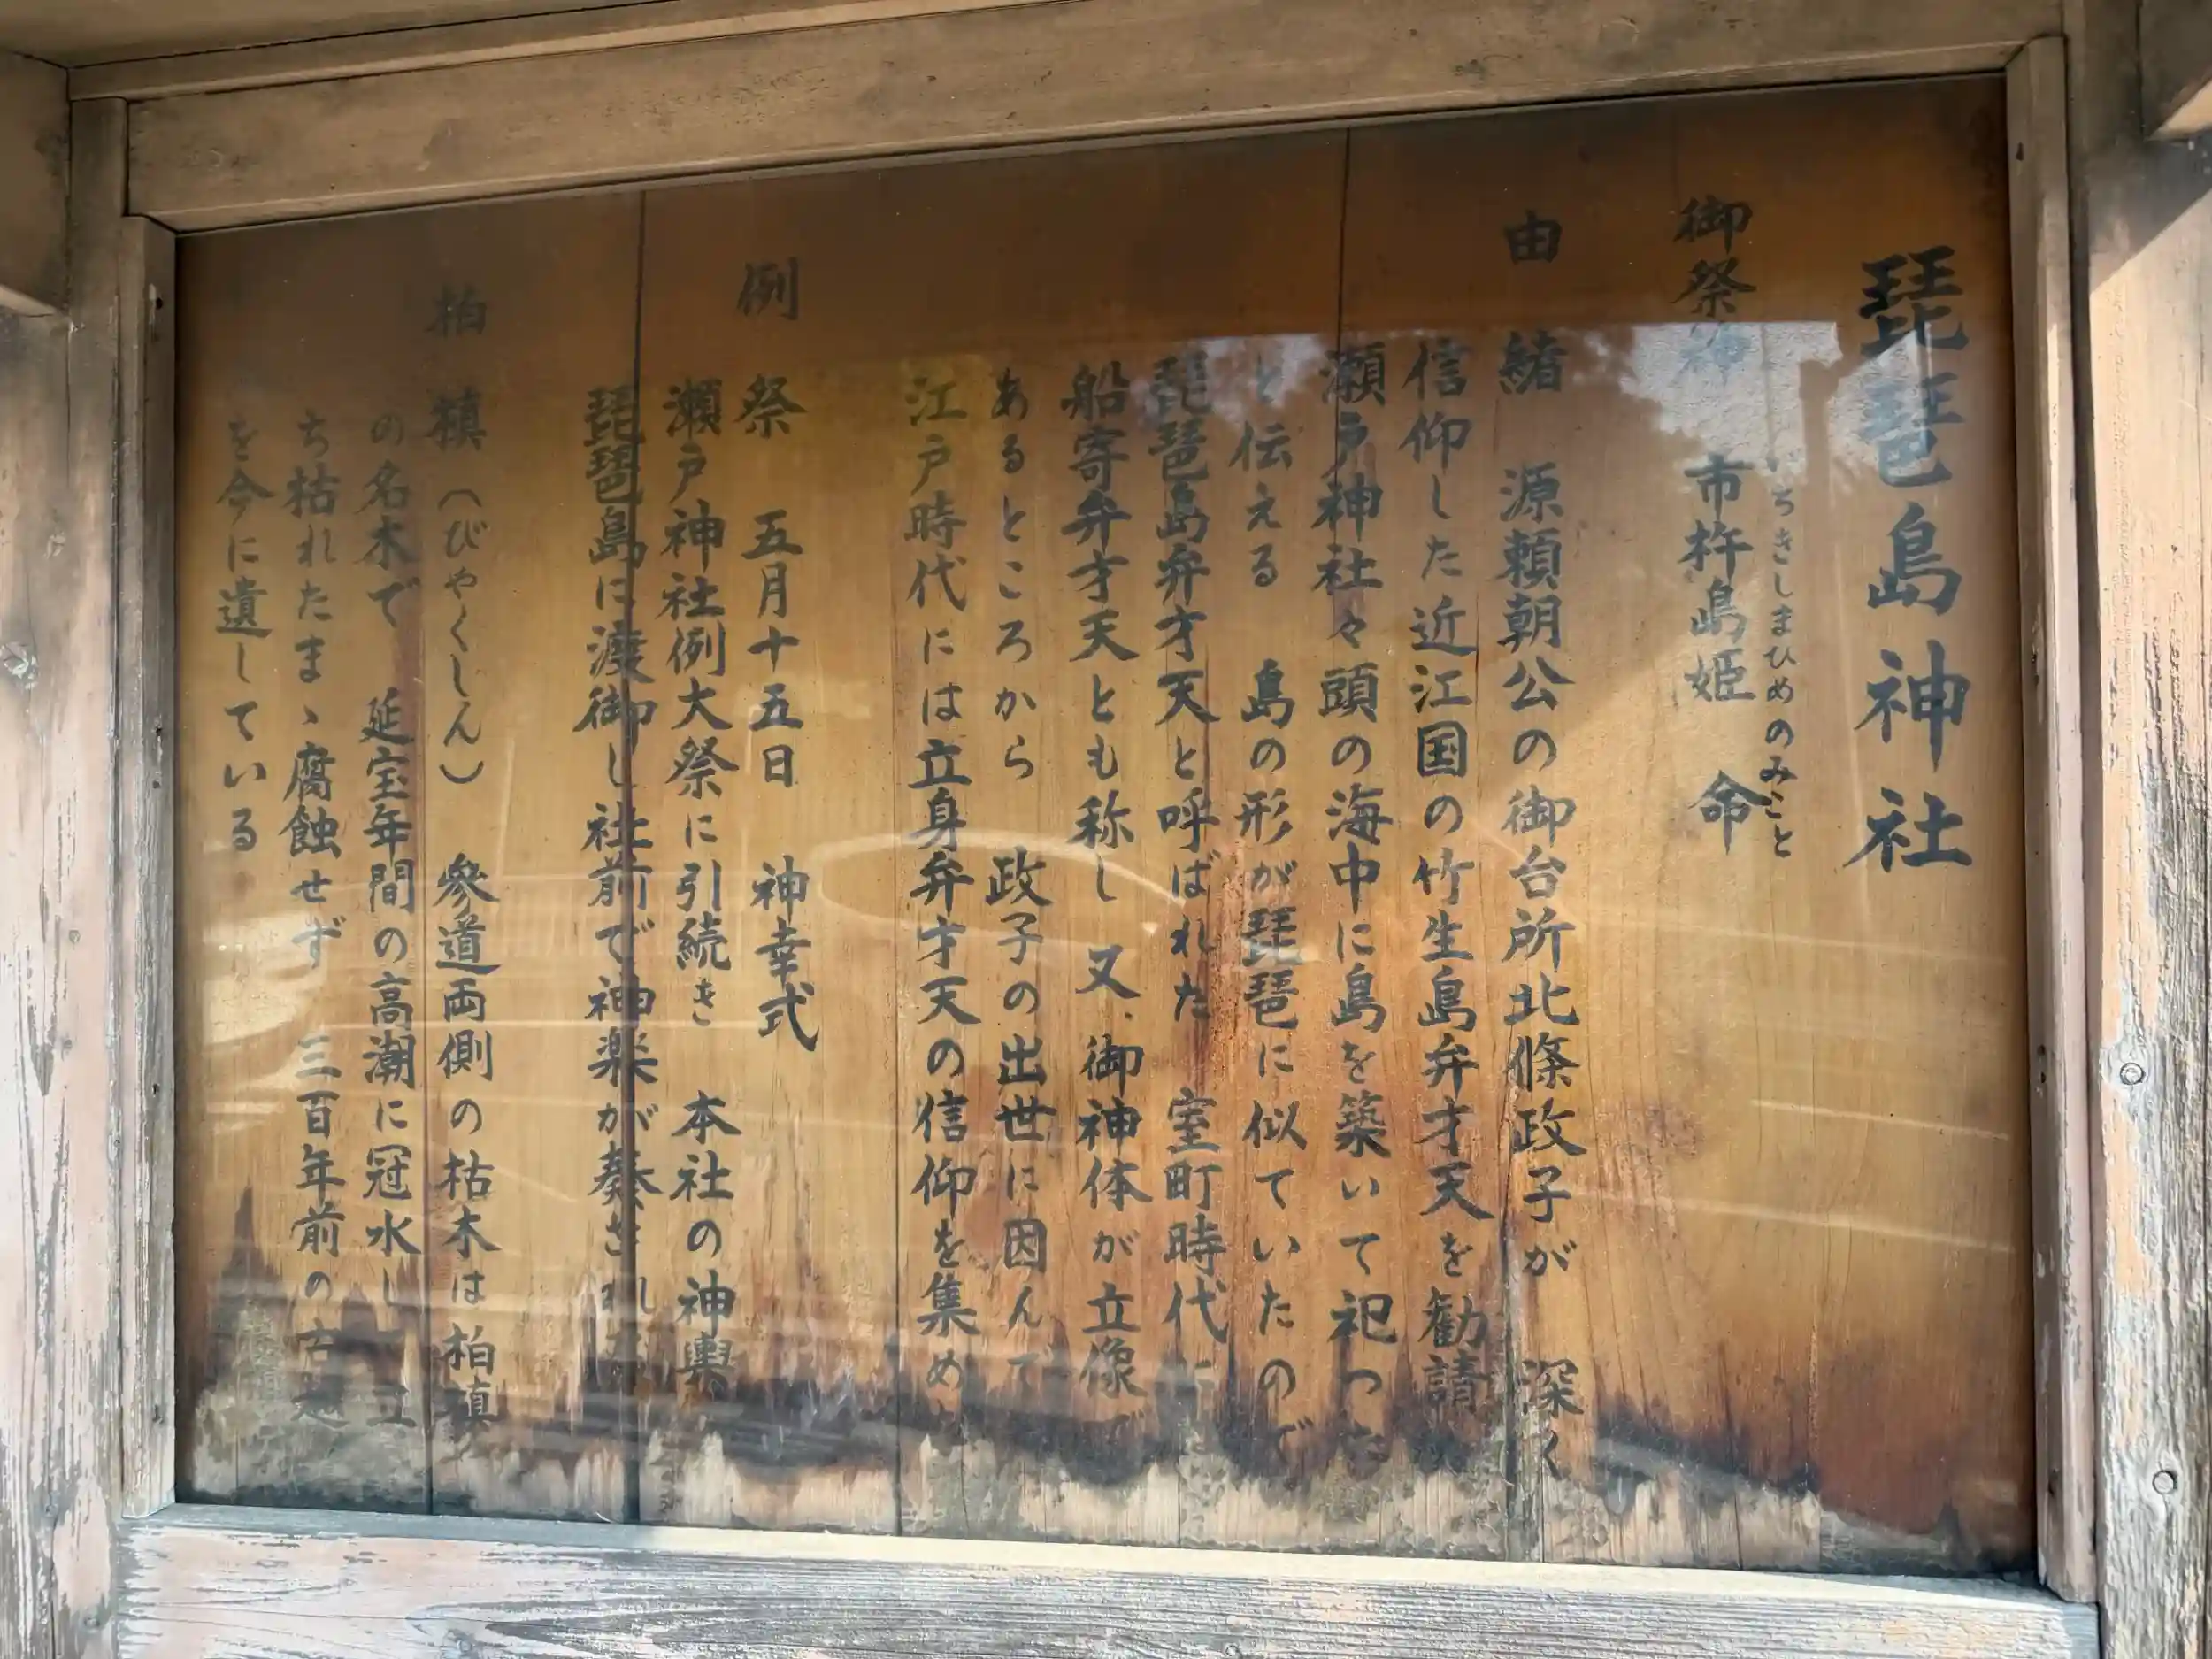 琵琶島神社
御祭神
いちきしまひめのみこと
市杵島姫 命
由 緒 源頼朝公の御台所北條政子が 深く
信仰した近江国の竹生島弁才天を勧請
瀬戸神社々頭の海中に島を築いて祀った
と伝える 島の形が琵琶に似ていたので
琵琶島弁才天と呼ばれた 室町時代に
船寄弁才天とも称し 又、御神体が立像で
あるところから 政子の出世に因んで
江戸時代には立身弁才天の信仰を集め
例 祭 五月十五日 神幸式
瀬戸神社例大祭に引続き 本社の神輿
琵琶島に渡御し社前で神楽が奏され
柏 槇(びゃくしん) 參道両側の枯木は柏槇
の名木で 延宝年間の高潮に冠水し 立
ち枯れたまゝ腐蝕せず 三百年前の古
を今に遺している